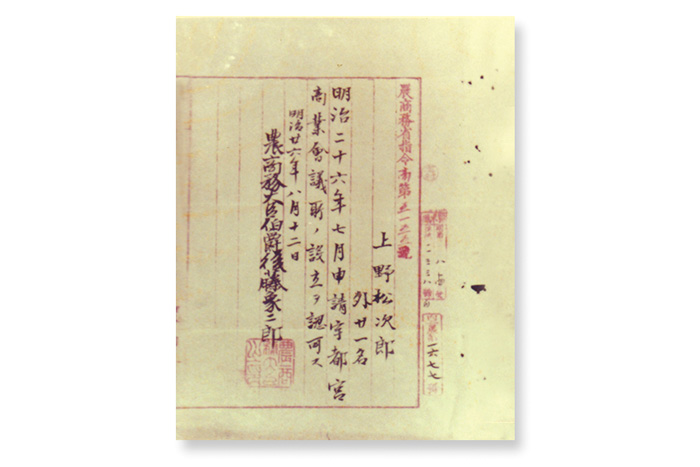 農商務省指令商第五一三三號
上野松次郎
外廿一名
明治二十六年七月申請宇都宮
商業會議所ノ設立ヲ認可ス
明治廿六年八月十二日
農商務大臣伯爵後藤象二郎
一六七七